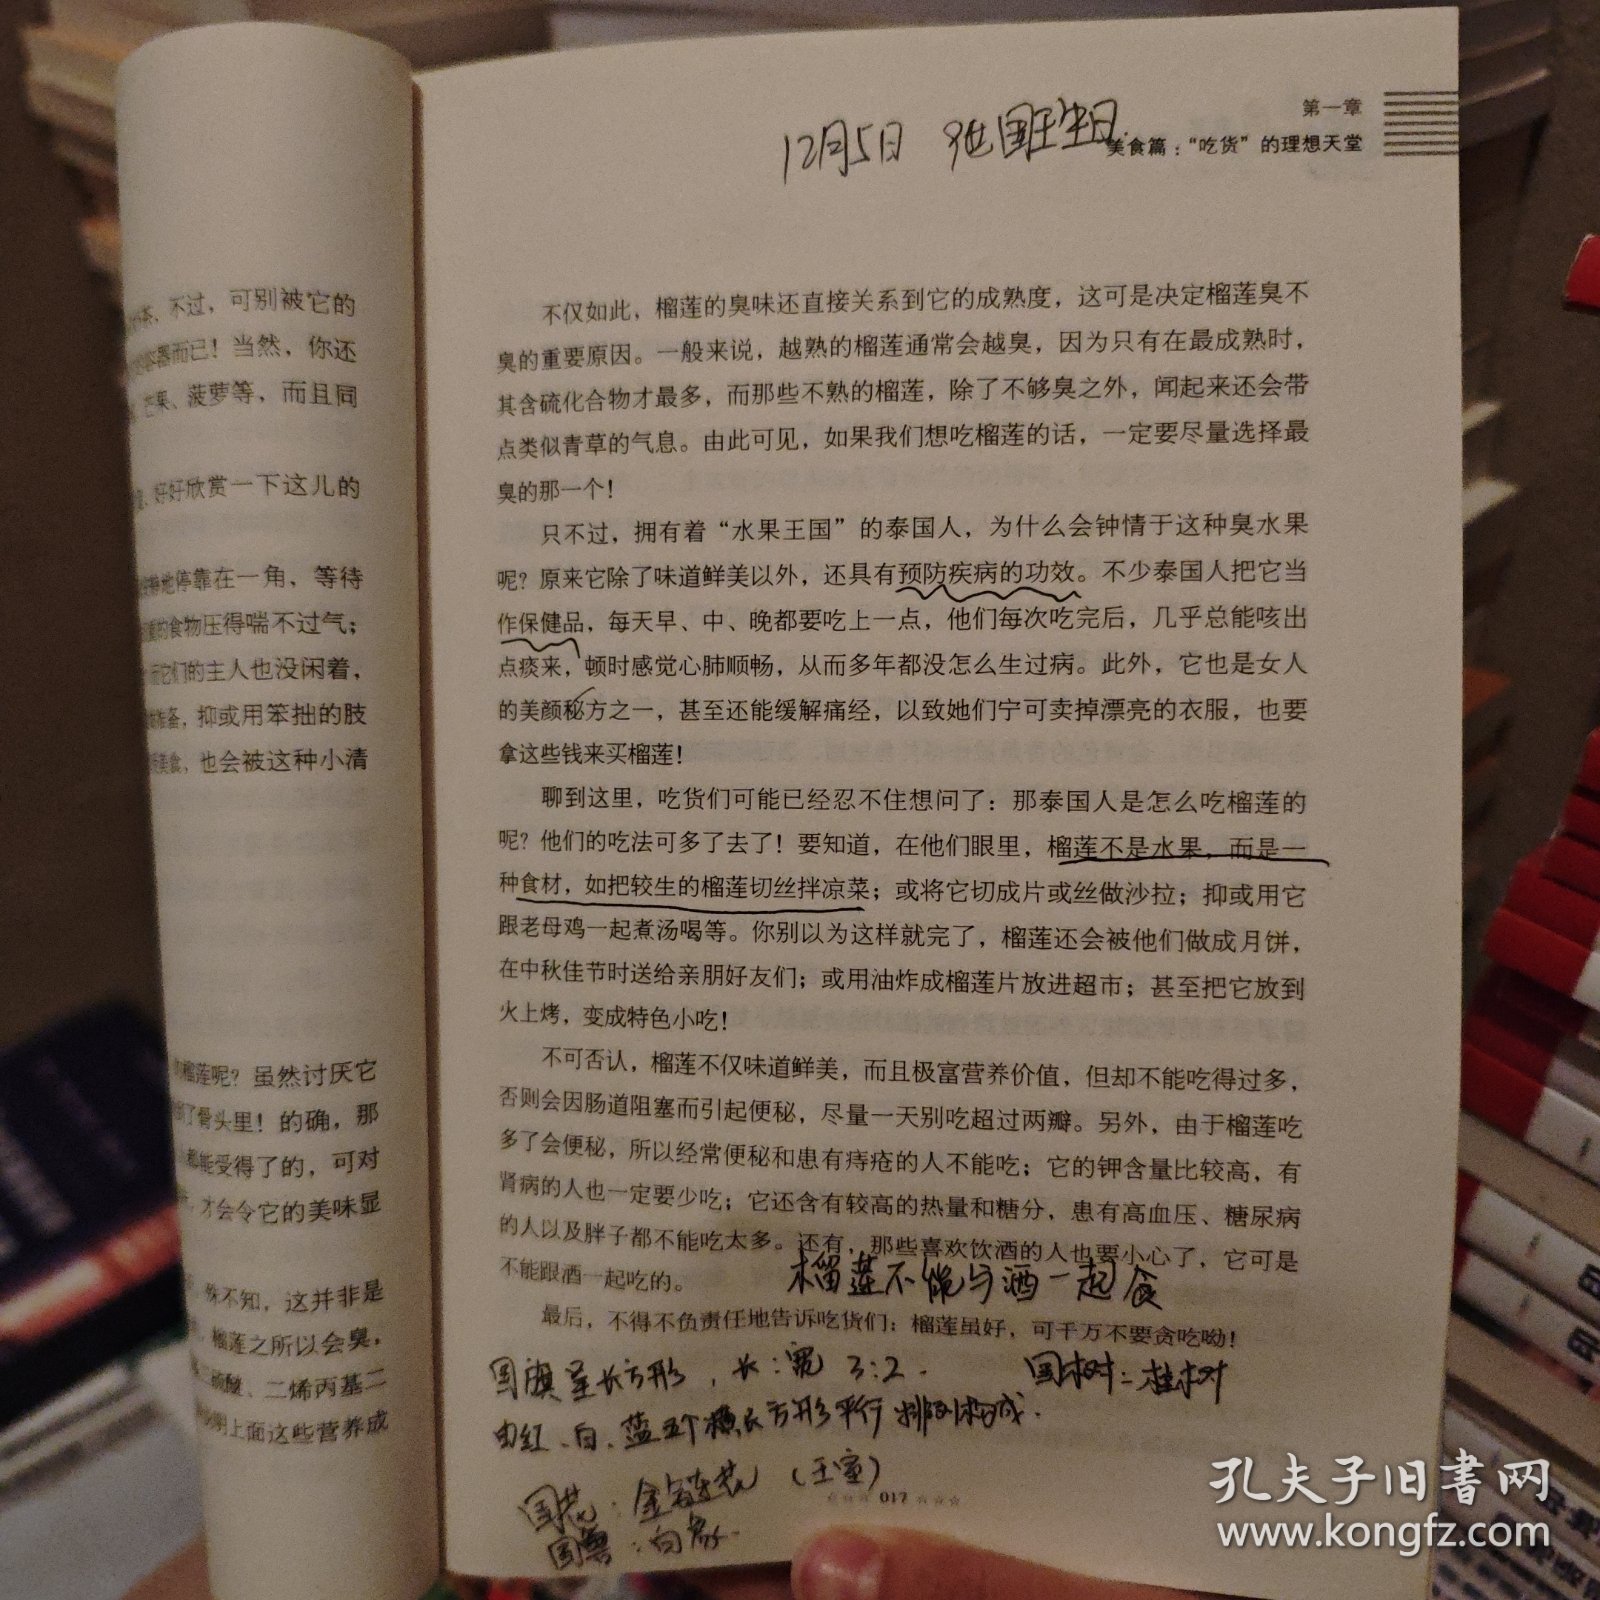 第一章
美食篇：“吃货”的理想天堂
12月5日 九世国王生日.
茶、不过，可别被它的
容器而已！当然，你还
芒果、菠萝等，而且同
好好欣赏一下这儿的
静地停靠在一角，等待
的食物压得喘不过气；
它们的主人也没闲着，
准备，抑或用笨拙的肢
美食，也会被这种小清
榴莲呢？虽然讨厌它
了骨头里！的确，那
都能受得了的，可对
才会令它的美味显
殊不知，这并非是
榴莲之所以会臭，
硫酸、二烯丙基二
明上面这些营养成
不仅如此，榴莲的臭味还直接关系到它的成熟度，这可是决定榴莲臭不
臭的重要原因。一般来说，越熟的榴莲通常会越臭，因为只有在最成熟时，
其含硫化合物才最多，而那些不熟的榴莲，除了不够臭之外，闻起来还会带
点类似青草的气息。由此可见，如果我们想吃榴莲的话，一定要尽量选择最
臭的那一个！
只不过，拥有着“水果王国”的泰国人，为什么会钟情于这种臭水果
呢？原来它除了味道鲜美以外，还具有预防疾病的功效。不少泰国人把它当
作保健品，每天早、中、晚都要吃上一点，他们每次吃完后，几乎总能咳出
点痰来，顿时感觉心肺顺畅，从而多年都没怎么生过病。此外，它也是女人
的美颜秘方之一，甚至还能缓解痛经，以致她们宁可卖掉漂亮的衣服，也要
拿这些钱来买榴莲！
聊到这里，吃货们可能已经忍不住想问了：那泰国人是怎么吃榴莲的
呢？他们的吃法可多了去了！要知道，在他们眼里，榴莲不是水果，而是一
种食材，如把较生的榴莲切丝拌凉菜；或将它切成片或丝做沙拉；抑或用它
跟老母鸡一起煮汤喝等。你别以为这样就完了，榴莲还会被他们做成月饼，
在中秋佳节时送给亲朋好友们；或用油炸成榴莲片放进超市；甚至把它放到
火上烤，变成特色小吃！
不可否认，榴莲不仅味道鲜美，而且极富营养价值，但却不能吃得过多，
否则会因肠道阻塞而引起便秘，尽量一天别吃超过两瓣。另外，由于榴莲吃
多了会便秘，所以经常便秘和患有痔疮的人不能吃；它的钾含量比较高，有
肾病的人也一定要少吃；它还含有较高的热量和糖分，患有高血压、糖尿病
的人以及胖子都不能吃太多。还有，那些喜欢饮酒的人也要小心了，它可是
不能跟酒一起吃的。
榴莲不能与酒一起食
最后，不得不负责任地告诉吃货们：榴莲虽好，可千万不要贪吃呦！
国旗呈长方形，长：宽 3:2. 国树：桂树
由红、白、蓝五个横长方形平行排列构成.
国花：金链花（王室）
017
国兽：白象.
孔夫子旧书网
www.kongfz.com